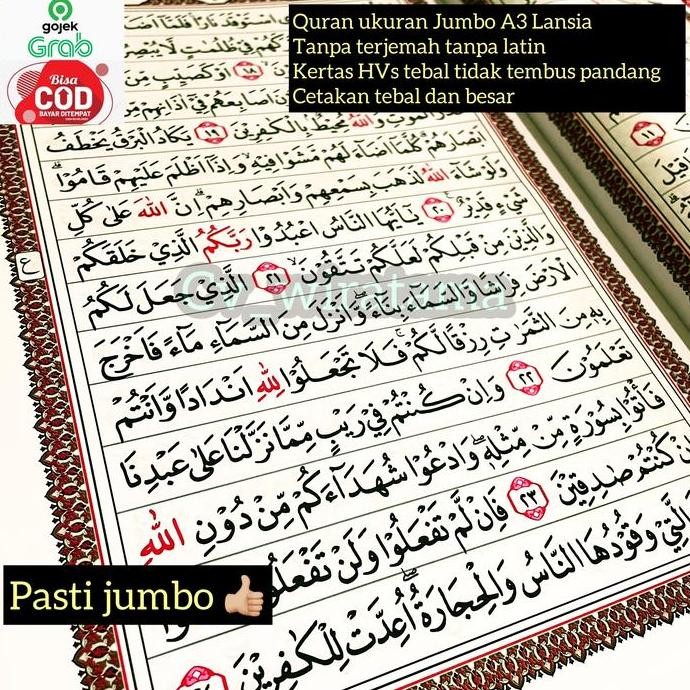 gojek
Grab
Bisa
COD
BAYAR DITEMPAT
Quran ukuran Jumbo A3 Lansia
Tanpa terjemah tanpa latin
Kertas HVs tebal tidak tembus pandang
Cetakan tebal dan besar
مُحِيْطٌ بِالْكٰفِرِيْنَ ۝١٩ يَكَادُ الْبَرْقُ يَخْطَفُ
اَبْصَارَهُمْ ۗ كُلَّمَآ اَضَآءَ لَهُمْ مَّشَوْا فِيْهِ ۙ وَاِذَآ اَظْلَمَ عَلَيْهِمْ قَامُوْا ۗ
وَلَوْ شَآءَ اللّٰهُ لَذَهَبَ بِسَمْعِهِمْ وَاَبْصَارِهِمْ ۗ اِنَّ اللّٰهَ عَلٰى كُلِّ
شَيْءٍ قَدِيْرٌ ۝٢٠ يٰٓاَيُّهَا النَّاسُ اعْبُدُوْا رَبَّكُمُ الَّذِيْ خَلَقَكُمْ
وَالَّذِيْنَ مِنْ قَبْلِكُمْ لَعَلَّكُمْ تَتَّقُوْنَ ۝٢١ الَّذِيْ جَعَلَ لَكُمُ
الْاَرْضَ فِرَاشًا وَّالسَّمَآءَ بِنَآءً ۖ وَّاَنْزَلَ مِنَ السَّمَآءِ مَآءً فَاَخْرَجَ
بِهٖ مِنَ الثَّمَرٰتِ رِزْقًا لَّكُمْ ۚ فَلَا تَجْعَلُوْا لِلّٰهِ اَنْدَادًا وَّاَنْتُمْ
تَعْلَمُوْنَ ۝٢٢ وَاِنْ كُنْتُمْ فِيْ رَيْبٍ مِّمَّا نَزَّلْنَا عَلٰى عَبْدِنَا
فَأْتُوْا بِسُوْرَةٍ مِّنْ مِّثْلِهٖ ۖ وَادْعُوْا شُهَدَآءَكُمْ مِّنْ دُوْنِ اللّٰهِ
كُنْتُمْ صٰدِقِيْنَ ۝٢٣ فَاِنْ لَّمْ تَفْعَلُوْا وَلَنْ تَفْعَلُوْا
الَّتِيْ وَقُوْدُهَا النَّاسُ وَالْحِجَارَةُ ۖ اُعِدَّتْ لِلْكٰفِرِيْنَ
ع
Gv_wiratama
Pasti jumbo